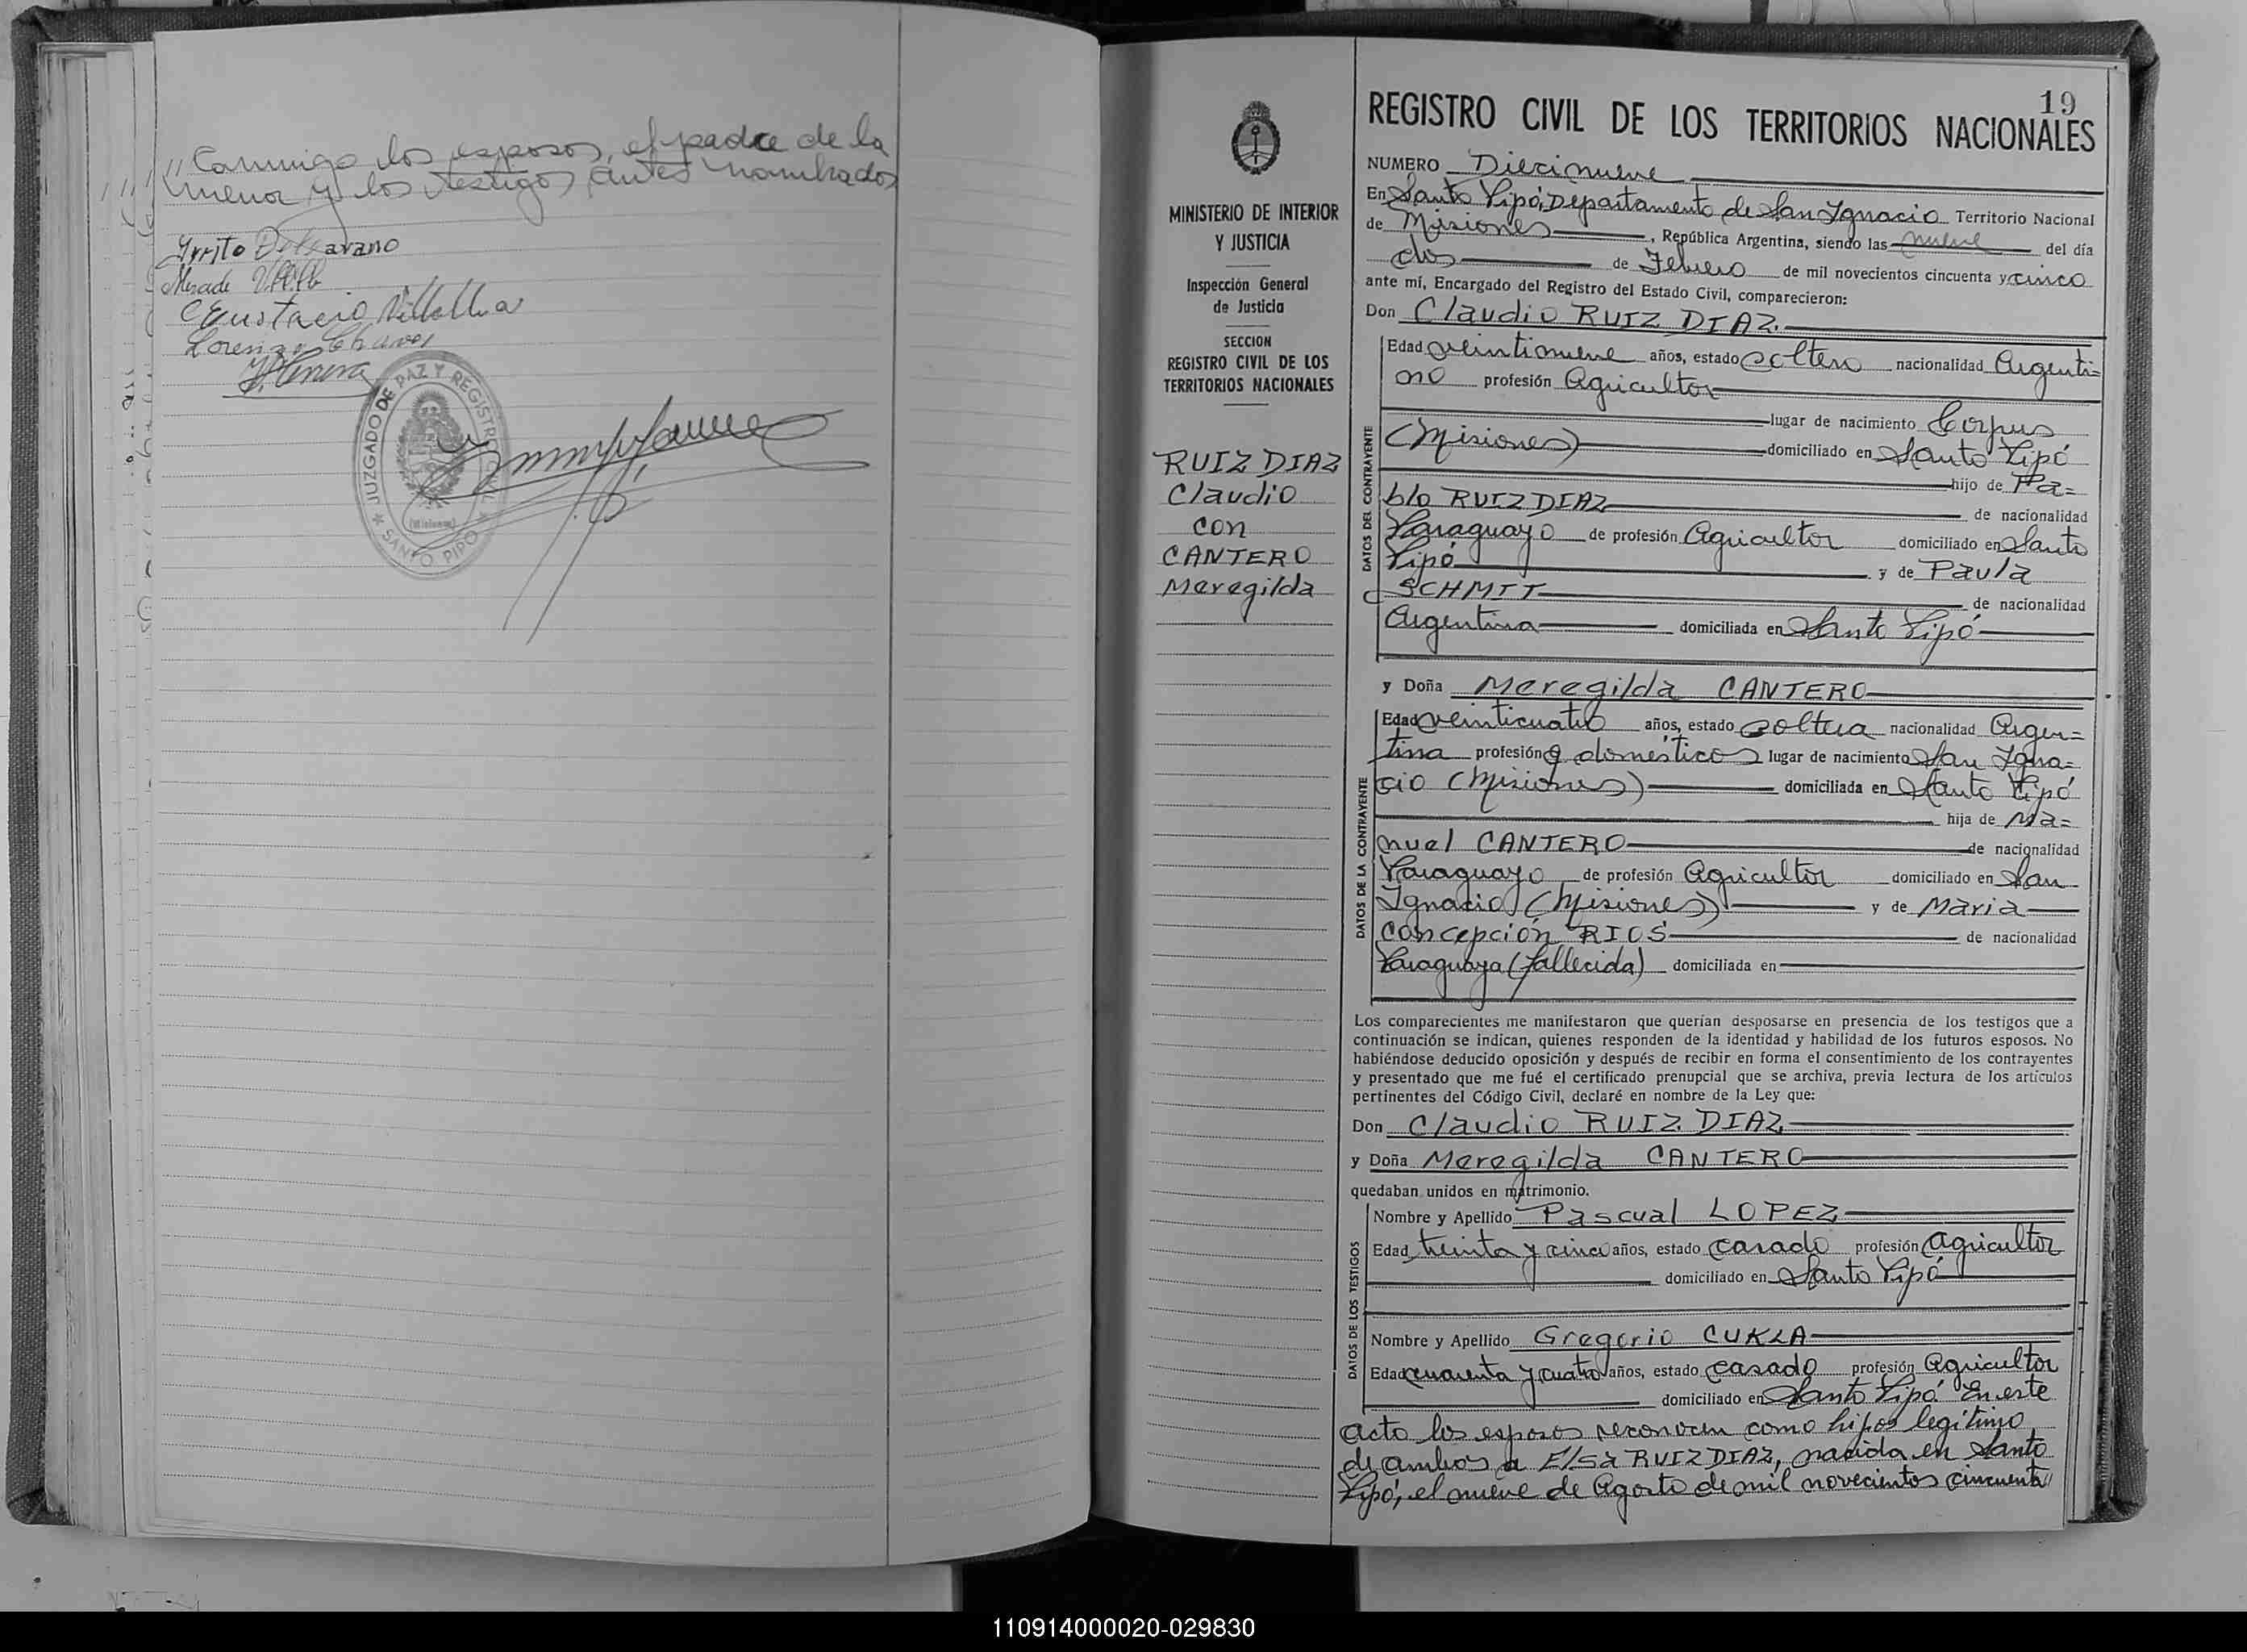 // Conmigo los esposos, el padre de la
menor y los testigos antes nombrados
Eustacio Villalba
JUZGADO DE PAZ Y REGISTRO CIVIL
(Misiones)
★ SANTO PIPO ★
MINISTERIO DE INTERIOR
Y JUSTICIA
Inspección General
de Justicia
SECCION
REGISTRO CIVIL DE LOS
TERRITORIOS NACIONALES
RUIZ DIAZ
Claudio
con
CANTERO
Meregilda
19
REGISTRO CIVIL DE LOS TERRITORIOS NACIONALES
NUMERO Diecinueve
En Santo Pipó, Departamento de San Ignacio Territorio Nacional
de Misiones, República Argentina, siendo las nueve del día
dos de Febrero de mil novecientos cincuenta y cinco
ante mí, Encargado del Registro del Estado Civil, comparecieron:
Don Claudio RUIZ DIAZ.
DATOS DEL CONTRAYENTE
Edad veintinueve años, estado soltero nacionalidad Argenti=
no profesión Agricultor
lugar de nacimiento Corpus
(Misiones) domiciliado en Santo Pipó
hijo de Pa=
blo RUIZ DIAZ de nacionalidad
Paraguayo de profesión Agricultor domiciliado en Santo
Pipó y de Paula
SCHMIT de nacionalidad
Argentina domiciliada en Santo Pipó
y Doña Meregilda CANTERO
DATOS DE LA CONTRAYENTE
Edad veinticuatro años, estado soltera nacionalidad Argen=
tina profesión q. domésticos lugar de nacimiento San Igna=
cio (Misiones) domiciliada en Santo Pipó
hija de Ma=
nuel CANTERO de nacionalidad
Paraguayo de profesión Agricultor domiciliado en San
Ignacio (Misiones) y de Maria
Concepción RIOS de nacionalidad
Paraguaya (fallecida) domiciliada en
Los comparecientes me manifestaron que querían desposarse en presencia de los testigos que a
continuación se indican, quienes responden de la identidad y habilidad de los futuros esposos. No
habiéndose deducido oposición y después de recibir en forma el consentimiento de los contrayentes
y presentado que me fué el certificado prenupcial que se archiva, previa lectura de los artículos
pertinentes del Código Civil, declaré en nombre de la Ley que:
Don Claudio RUIZ DIAZ
y Doña Meregilda CANTERO
quedaban unidos en matrimonio.
DATOS DE LOS TESTIGOS
Nombre y Apellido Pascual LOPEZ
Edad treinta y cinco años, estado casado profesión Agricultor
domiciliado en Santo Pipó
Nombre y Apellido Gregorio CUKLA
Edad cuarenta y cuatro años, estado casado profesión Agricultor
domiciliado en Santo Pipó En este
acto los esposos reconocen como hijos legítimo
de ambos a Elsa RUIZ DIAZ, nacida en Santo
Pipó, el nueve de Agosto de mil novecientos cincuenta //
110914000020-029830